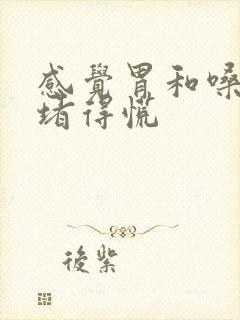 感覺胃和嗓
堵得慌
後紫